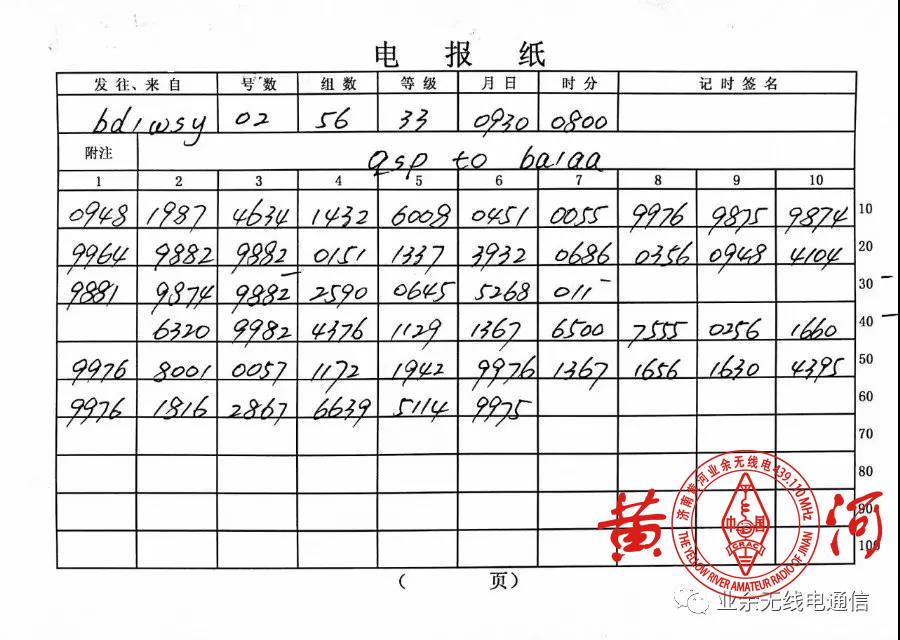 电 报 纸
发往、来自 号数 组数 等级 月日 时分 记时签名
bd1wsy 02 56 33 0930 0800
附注 qsp to ba1aa
1 2 3 4 5 6 7 8 9 10
0948 1987 4634 1432 6008 0451 0055 9976 9875 9874 10
9964 9882 9882 0151 1337 3932 0686 0356 0948 4104 20
9881 9874 9882 2590 0645 5268 011 30
6320 9982 4376 1129 1367 6500 7555 0256 1660 40
9976 8001 0057 1172 1942 9976 1367 1656 1630 4395 50
9976 1816 2867 6639 5114 9975 60
70
80
90
100
黄 河
济南黄河业余无线电439.110MHz
中国
CRAC
THE YELLOW RIVER AMATEUR RADIO OF JINAN
( 页)
业余无线电通信